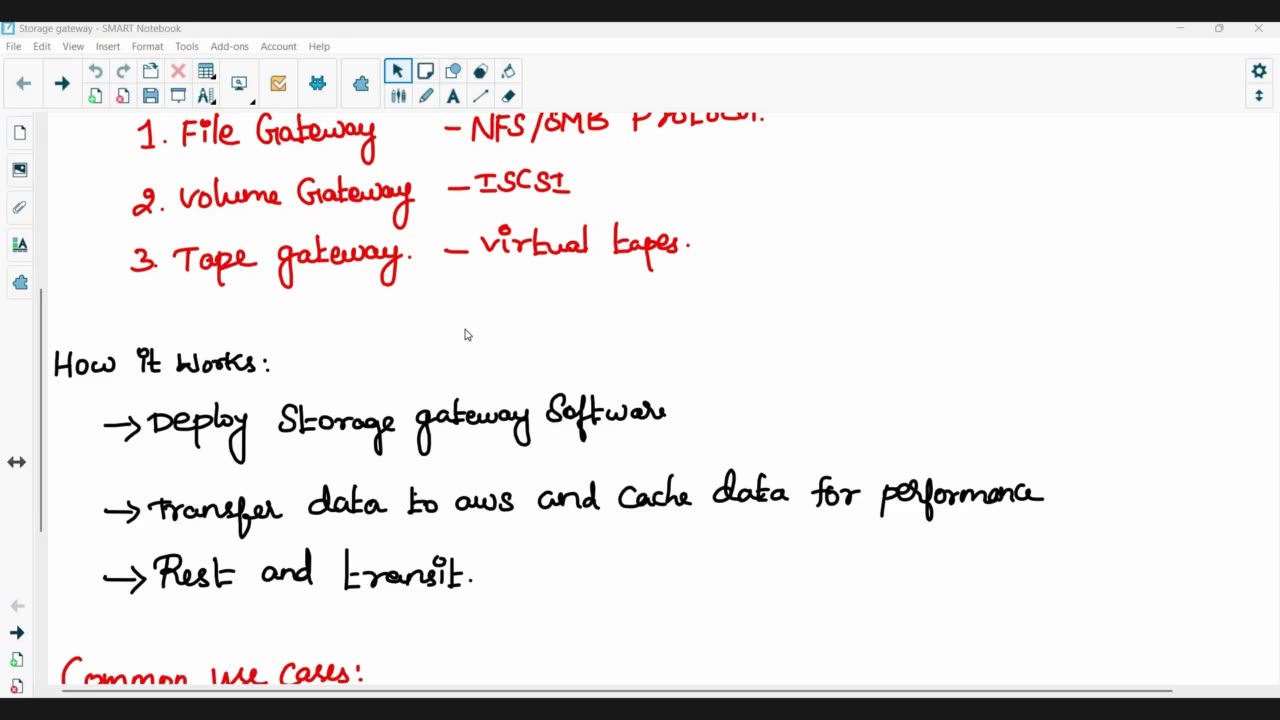 Storage gateway - SMART Notebook
File Edit View Insert Format Tools Add-ons Account Help
1. File Gateway - NFS/SMB Protocol.
2. Volume Gateway - ISCSI
3. Tape gateway. - Virtual tapes.
How it works:
→ Deploy Storage gateway Software
→ Transfer data to aws and Cache data for performance
→ Rest and transit.
Common use cases: